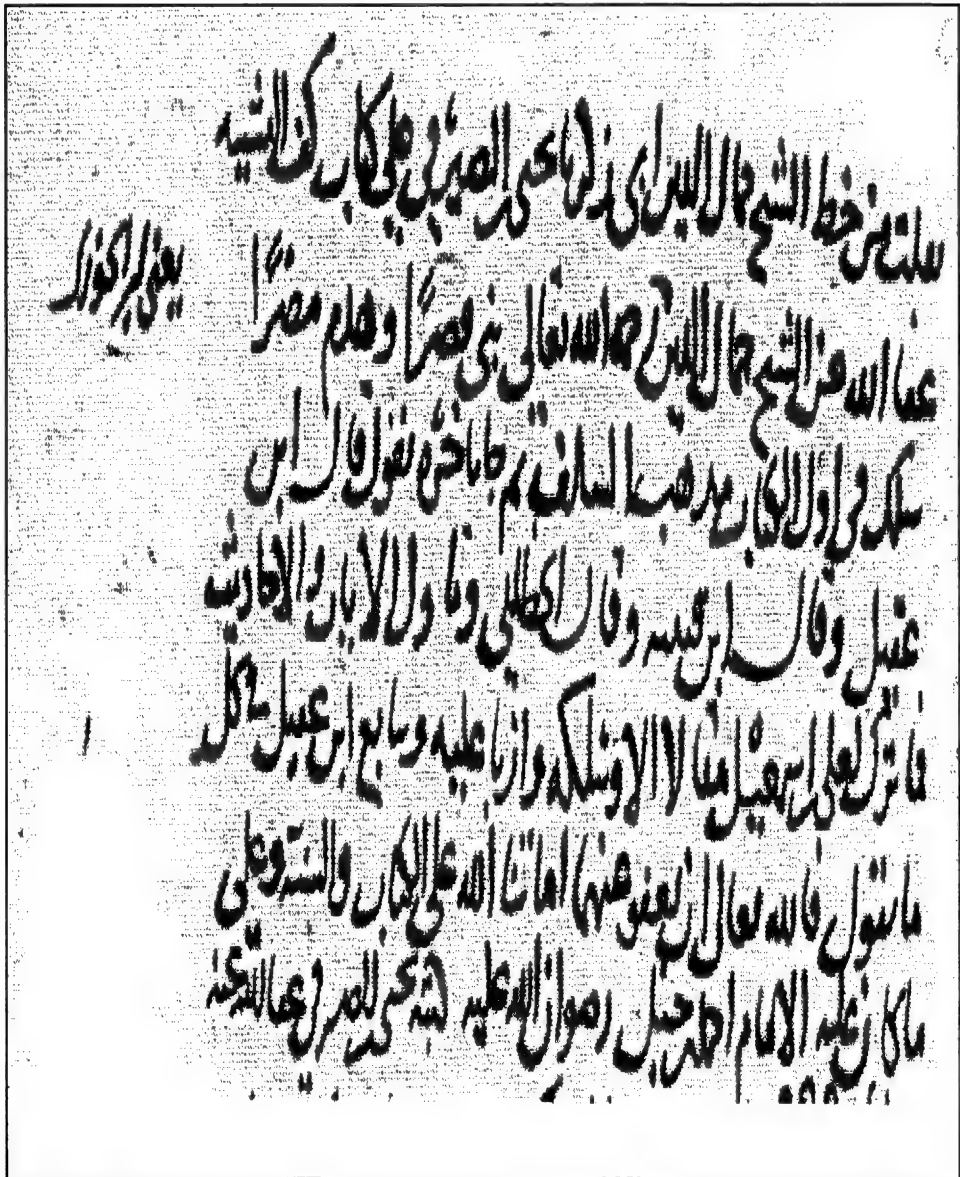 نقلت من خط الشيخ جمال الدين ابي زكريا يحيى الصيرفي على كتاب كف التشبيه
عفا الله عن الشيخ جمال الدين رحمه الله تعالى بنى قصرًا وهدم مصرًا
يعني ابن الجوزي
سلك في اول الكتاب مذهب السلف ثم جا باخره يقول قال ابن
عقيل وقال ابن قتيبه وقال الخطابي وتاول الايات والاحاديث
فما ترك لعلي ابن عقيل مقالا الا وسلكه وازيا عليه وتابع ابن عقيل كل
ما يقول فالله تعالى ان يعفو عنهما اماتنا الله على الكتاب والسنة وعلى
ما كان عليه الامام احمد حنبل رضوان الله عليه كتبه يحيى الصيرفي عفا الله عنه